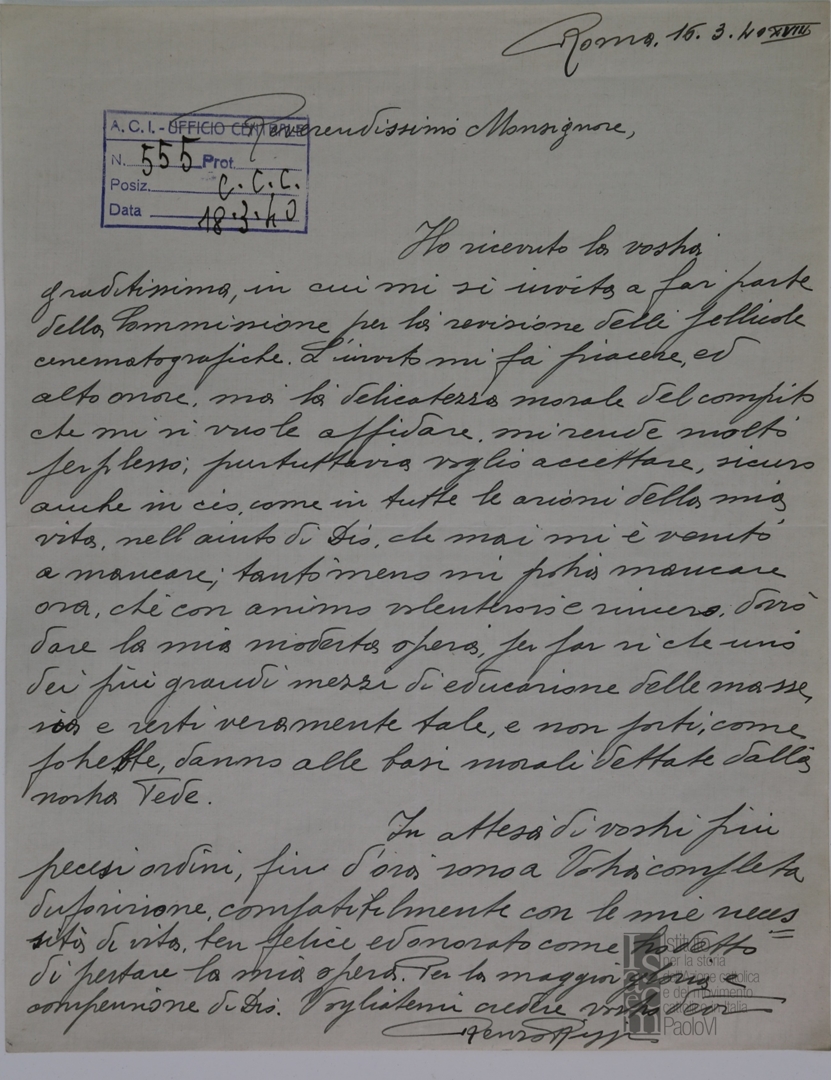 Roma. 15. 3. 40 XVIII
Reverendissimo Monsignore,
A. C. I. - UFFICIO CENTRALE
N. 555 Prot.
Posiz. C. C. C.
Data 18.3.40
Ho ricevuto la vostra
graditissima, in cui mi si invita a far parte
della Commissione per la revisione delle pellicole
cinematografiche. L'invito mi fa piacere, ed
alto onore, ma la delicatezza morale del compito
che mi si vuole affidare, mi rende molto
perplesso; purtuttavia voglio accettare, sicuro
anche in ciò, come in tutte le azioni della mia
vita, nell'aiuto di Dio, che mai mi è venuto
a mancare; tantomeno mi potrà mancare
ora, che con animo volenteroso e sincero, dovrò
dare la mia modesta opera, per far si che uno
dei più grandi mezzi di educazione delle masse,
sia e resti veramente tale, e non porti, come
potrebbe, danno alle basi morali dettate dalla
nostra Fede.
In attesa di vostri più
precisi ordini, fin d'ora sono a Vostra completa
disposizione, compatibilmente con le mie neces
sità di vita, ben felice ed onorato come
di prestare la mia opera, Per la maggior gloria e
compensione di Dio. Vogliatemi credere vostro
Renzo
Istituto
per la storia
dell'Azione cattolica
e del movimento
cattolico in Italia
PaoloVI